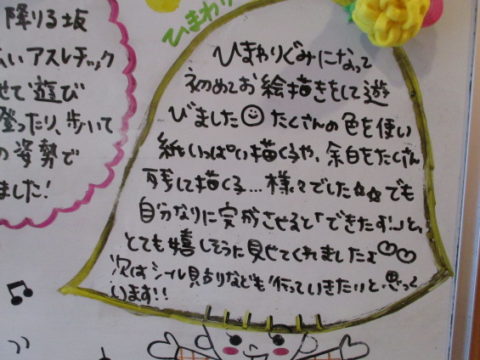 降りる坂
いアスレチック
せて遊び
登ったり、歩いて
の姿勢で
ました!
ひまわり
ひまわりぐみになって
初めてお絵描きをして遊
びました☺たくさんの色を使い
紙いっぱい描く子や、余白をたくさん
残して描く子…様々でした☆☆でも
自分なりに完成させると「できたす!」と、
とても嬉しそうに見せてくれましたよ♡♡
次はシール貼りなども行っていきたいと思って
います!!